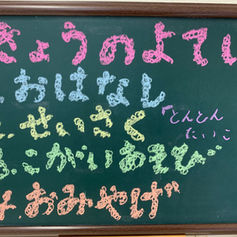 きょうのよてい
.おはなし
.せいさく
『とんとん
たいこ
.こがいあそび
.おみやげ